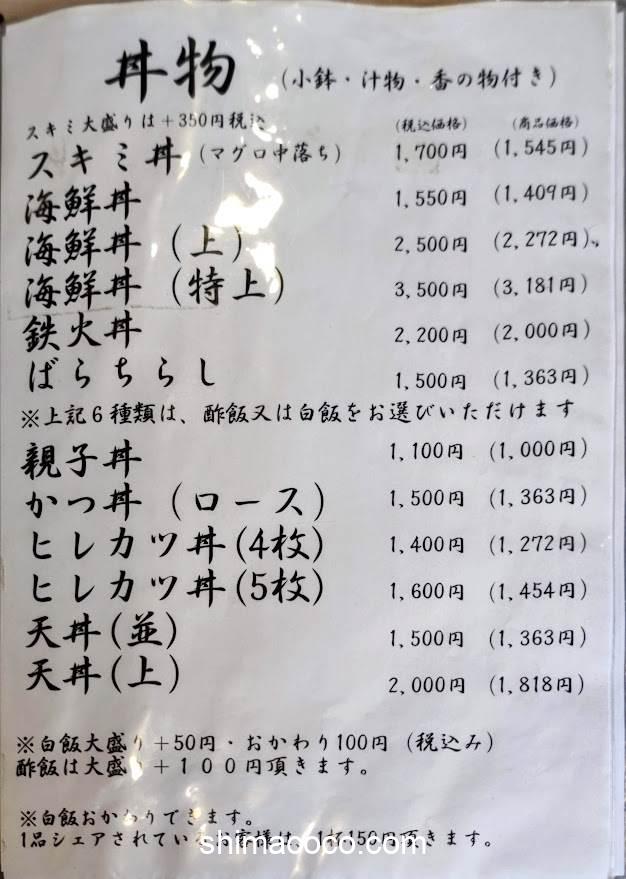 丼物 (小鉢・汁物・香の物付き)
スキミ大盛りは＋350円税込 (税込価格) (商品価格)
スキミ丼 (マグロ中落ち) 1,700円 (1,545円)
海鮮丼 1,550円 (1,409円)
海鮮丼 (上) 2,500円 (2,272円)
海鮮丼 (特上) 3,500円 (3,181円)
鉄火丼 2,200円 (2,000円)
ばらちらし 1,500円 (1,363円)
※上記6種類は、酢飯又は白飯をお選びいただけます
親子丼 1,100円 (1,000円)
かつ丼 (ロース) 1,500円 (1,363円)
ヒレカツ丼(4枚) 1,400円 (1,272円)
ヒレカツ丼(5枚) 1,600円 (1,454円)
天丼(並) 1,500円 (1,363円)
天丼(上) 2,000円 (1,818円)
※白飯大盛り＋50円・おかわり100円 (税込み)
酢飯は大盛り＋１００円頂きます。
※白飯おかわりできます。
1品シェアされているお客様は、1杯150円頂きます。
shimacoco.com